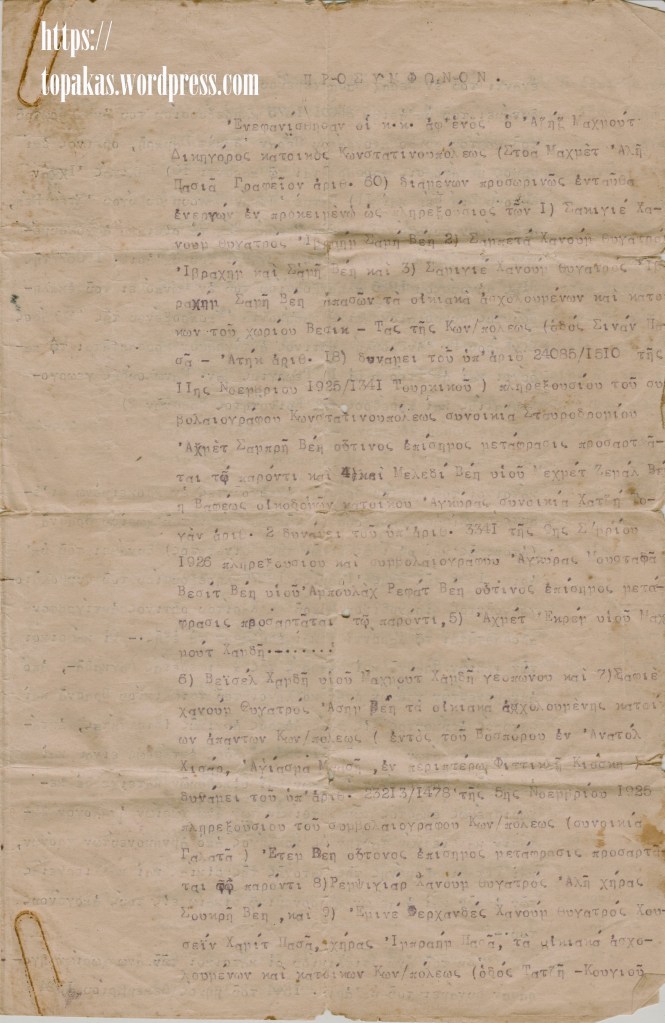 https://
topakas.wordpress.com
ΠΡΟΣΥΜΦΩΝΟΝ.
Ἐνεφανίσθησαν οἱ κ.κ. ἀφ'ἑνός ὁ Ἀζήζ Μαχμούτ
Δικηγόρος κάτοικος Κωνσταντινουπόλεως (Στοά Μαχμέτ Ἀλῆ
Πασιᾶ Γραφεῖον ἀριθ. 60) διαμένων προσωρινῶς ἐνταῦθα
ἐνεργῶν ἐν προκειμένῳ ὡς πληρεξούσιος τῶν 1) Σακιγιέ Χα-
νούμ θυγατρός Ἰβραήμ Σαμῆ Βέη 2) Χανούμ θυγατρός
Ἰβραχήμ καί Σαμῆ Βέη καί 3) Σαμιγιέ Χανούμ θυγατρός Ἰβ
ραχήμ Σαμῆ Βέη ἁπασῶν τά οἰκιακά ἀσχολουμένων καί κατο
κων τοῦ χωρίου Βεσίκ - Τάς τῆς Κων/πόλεως (ὁδός Σινάν Πα
σᾶ - Ἀτήκ ἀριθ. 18) δυνάμει τοῦ ὑπ'ἀριθ 24085/1510 τῆς
11ης Νοεμβρίου 1925/1341 Τουρκικοῦ ) πληρεξουσίου τοῦ συ
βολαιογράφου Κωνσταντινουπόλεως συνοικία Σταυροδρομίου
Ἀχμέτ Σαμπρῆ Βέη οὕτινος ἐπίσημος μετάφρασις προσαρτᾶ-
ται τῷ παρόντι καί 4)καί Μελεδί Βέη υἱοῦ Μεχμέτ Ζεμάλ Βέ
ἤ Βαφέως κατοίκου Ἀγκύρας συνοικία Χατζῆ
ἀριθ. 2 δυνάμει τοῦ ὑπ'ἀριθ. 3341 τῆς
1926 πληρεξουσίου καί συμβολαιογράφου Ἀγκύρας Μουσταφᾶ
Βεσίτ Βέη υἱοῦ Ἀμπουλάχ Ρεφάτ Βέη οὕτινος ἐπίσημος μετά-
φρασις προσαρτᾶται τῷ παρόντι,5) Ἀχμέτ Ἐκρέμ υἱοῦ Μαχ
μούτ Χαμδῆ........
6) Βεϊσέλ Χαμδῆ υἱοῦ Μαχμούτ Χαμδῆ γεωπόνου καί 7)Σαφιέ
χανούμ θυγατρός Ἀσήμ Βέη τά οἰκιακά ἀσχολουμένης κατοί
ων ἁπάντων Κων/πόλεως ( ἐντός τοῦ Βοσπόρου ἐν Ἀνατόλ
Χισάρ, Ἁγίασμα ,ἐν περιπτέρῳ
δυνάμει τοῦ ὑπ'ἀριθ. 23213/1478 τῆς 5ης Νοεμβρίου 1925
πληρεξουσίου τοῦ συμβολαιογράφου Κων/πόλεως (συνοικία
Γαλατᾶ ) Ἐτέμ Βέη οὕτονος ἐπίσημος μετάφρασις προσαρτᾶ
ται τῷ παρόντι 8)Ρεμψιγιάρ Χανούμ θυγατρός Ἀλῆ χήρας
Σουκρῆ Βέη ,καί 9) Ἐμινέ Φερχανδές Χανούμ θυγατρός Χου-
σεΐν Χαμίτ Πασᾶ, χήρας Ἰμπραήμ Πασᾶ, τά οἰκιακά ἀσχο-
λουμένων καί κατοίκων Κων/πόλεως (ὁδός Τατζῆ -Κουγιοῦ